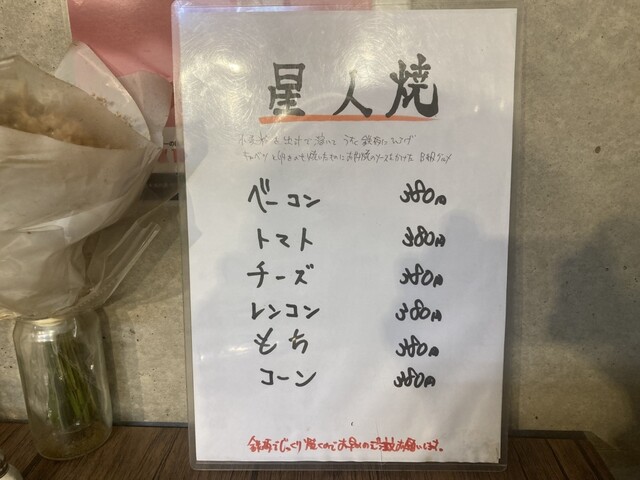 星人焼
小麦粉を出汁で溶いて うすく鉄板に ひろげ
キャベツと卵をのせ焼いたものにお好焼のソースをかけた B級グルメ
ベーコン 380円
トマト 380円
チーズ 380円
レンコン 380円
もち 380円
コーン 380円
鉄板でじっくり焼くのでお早めのご注文お願いします。